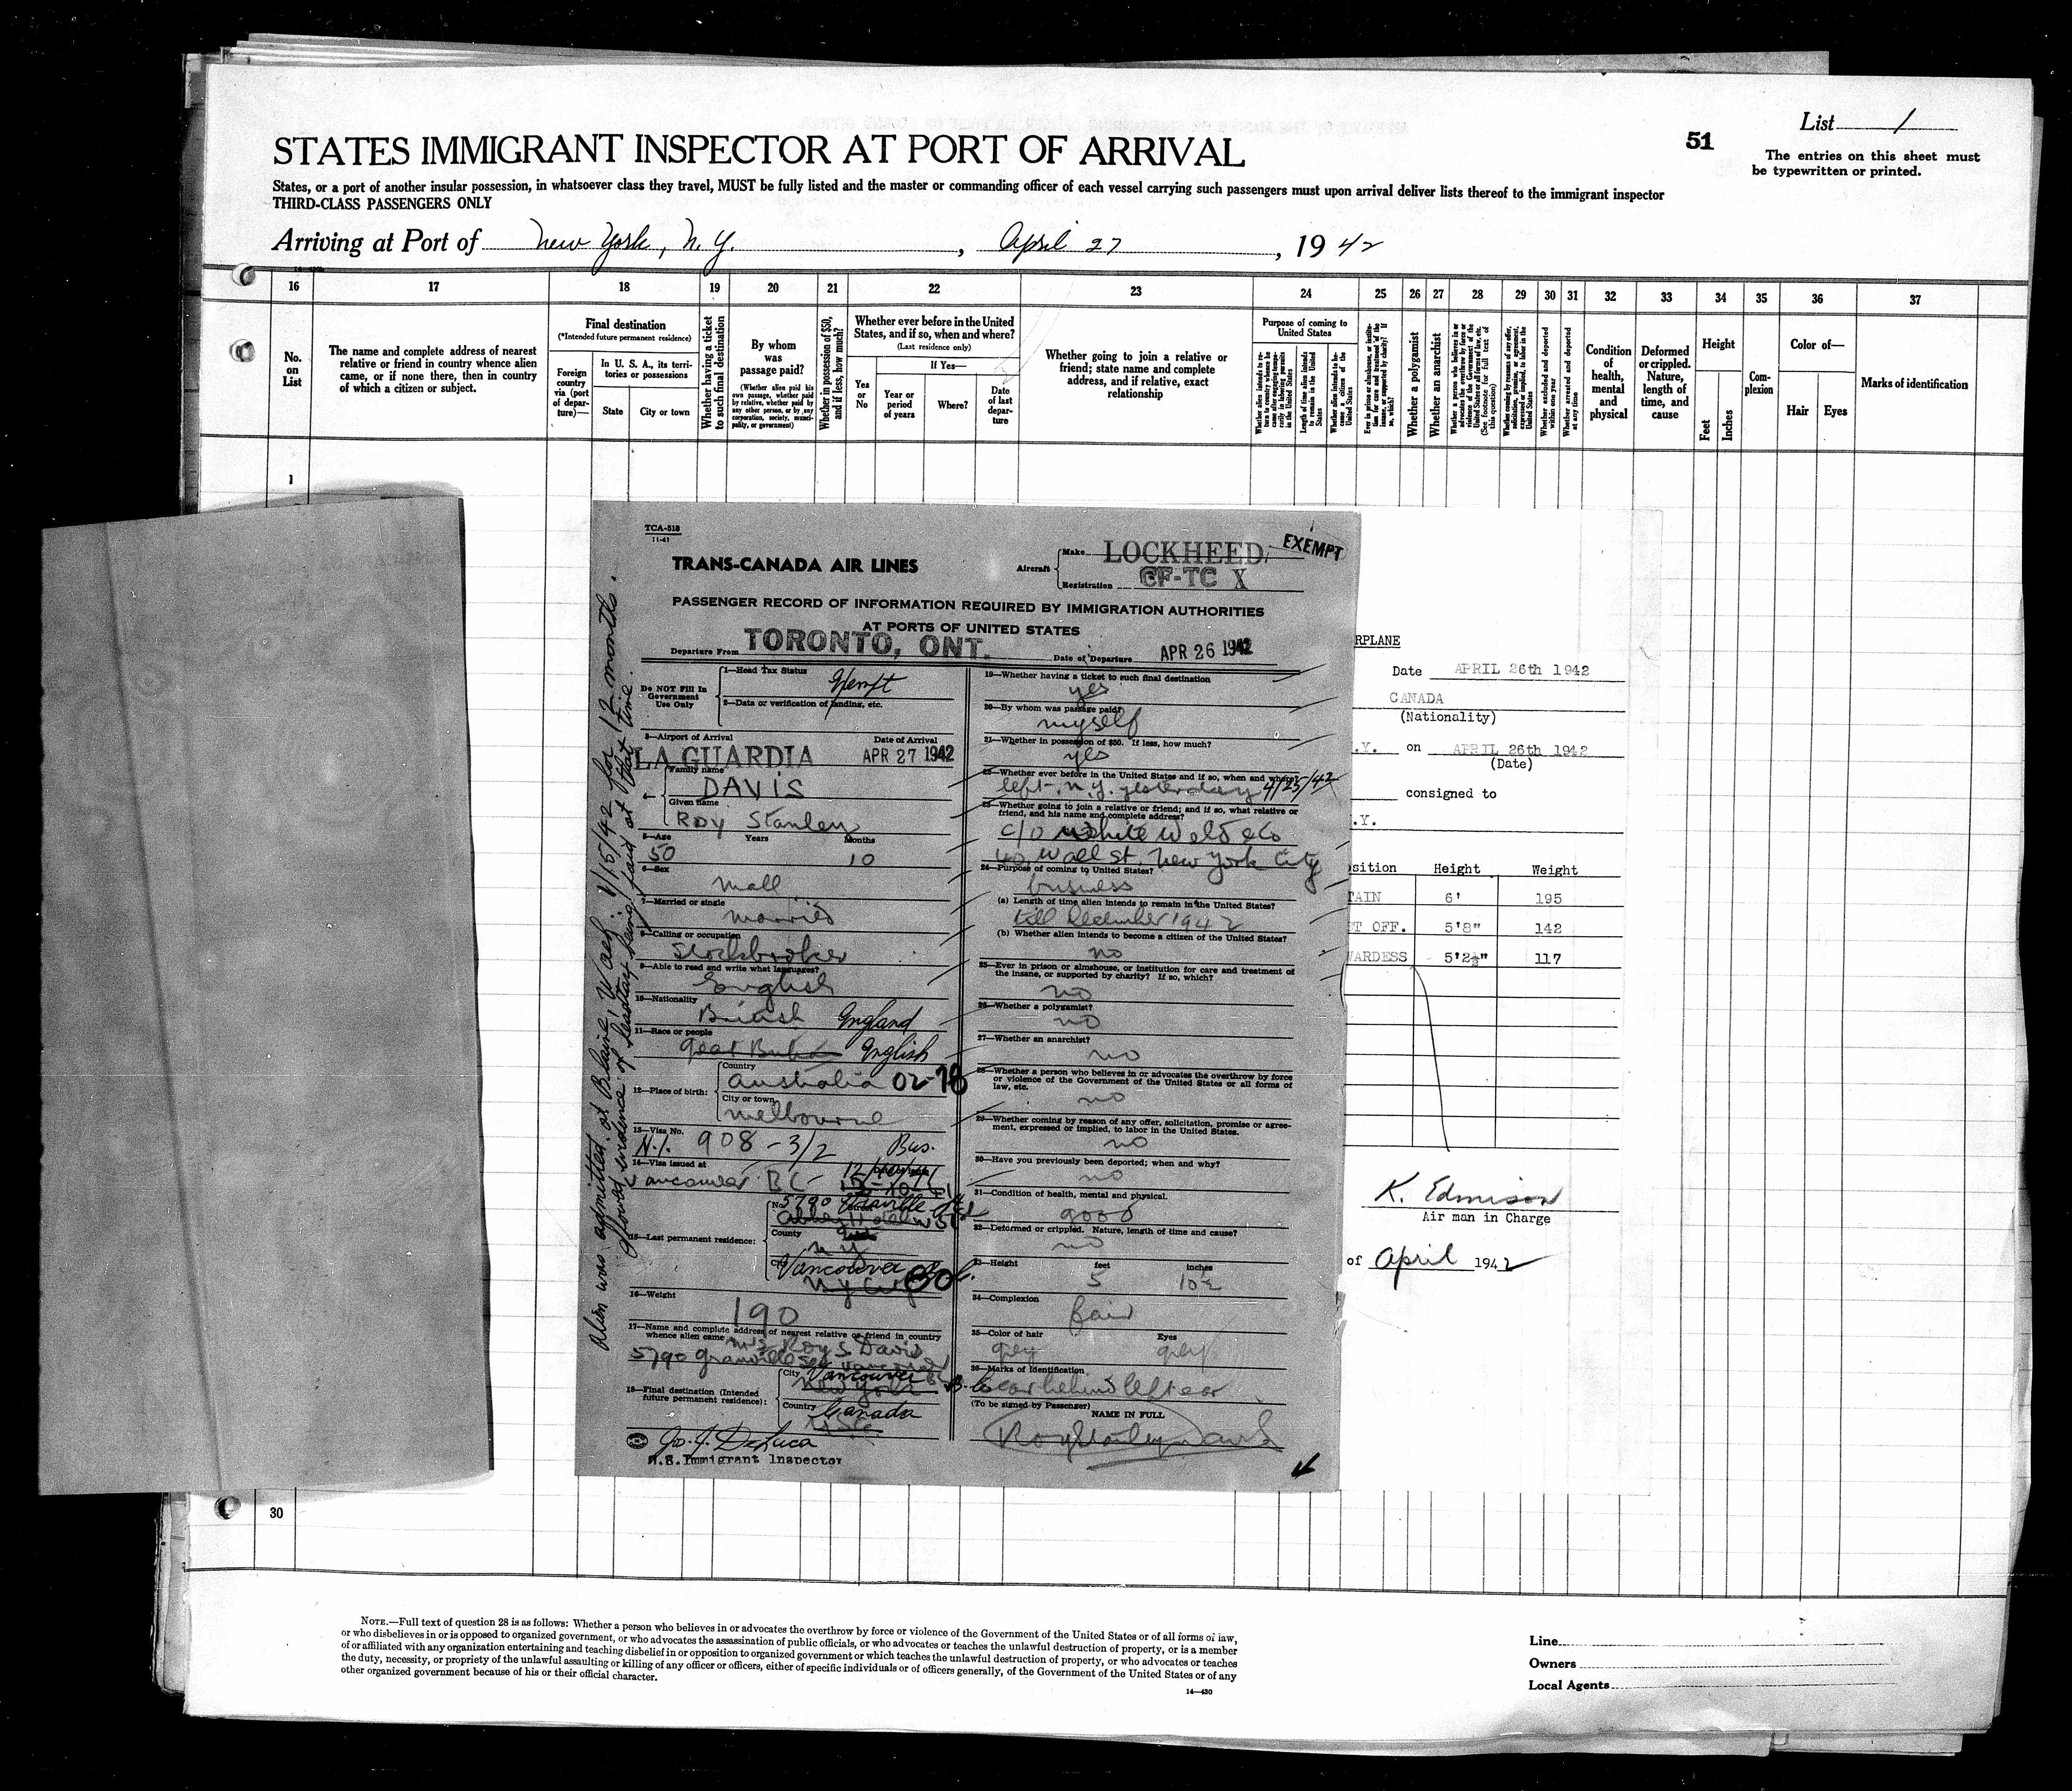 List 1
51
The entries on this sheet must
be typewritten or printed.
STATES IMMIGRANT INSPECTOR AT PORT OF ARRIVAL
States, or a port of another insular possession, in whatsoever class they travel, MUST be fully listed and the master or commanding officer of each vessel carrying such passengers must upon arrival deliver lists thereof to the immigrant inspector
THIRD-CLASS PASSENGERS ONLY
Arriving at Port of New York, N.Y., April 27, 1942
16 17 18 19 20 21 22 23 24 25 26 27 28 29 30 31 32 33 34 35 36 37
No. on List
The name and complete address of nearest relative or friend in country whence alien came, or if none there, then in country of which a citizen or subject.
Final destination
(*Intended future permanent residence)
Foreign country via (port of departure)—
In U. S. A., its territories or possessions
State
City or town
Whether having a ticket to such final destination
By whom was passage paid?
(Whether alien paid his own passage, whether paid by relative, whether paid by any other person, or by any corporation, society, municipality, or government)
Whether in possession of $50, and if less, how much?
Whether ever before in the United States, and if so, when and where?
(Last residence only)
Yes or No
If Yes—
Year or period of years
Where?
Date of last departure
Whether going to join a relative or friend; state name and complete address, and if relative, exact relationship
Purpose of coming to United States
Whether alien intends to return to country whence he came after engaging temporarily in laboring pursuits in the United States
Length of time alien intends to remain in the United States
Whether alien intends to become a citizen of the United States
Ever in prison or almshouse, or institution for care and treatment of the insane, or supported by charity? If so, which?
Whether a polygamist
Whether an anarchist
Whether a person who believes in or advocates the overthrow by force or violence of the Government of the United States or all forms of law, etc. (See footnote for full text of this question)
Whether coming by reason of any offer, solicitation, promise, or agreement, expressed or implied, to labor in the United States
Whether excluded and deported within one year
Whether arrested and deported at any time
Condition of health, mental and physical
Deformed or crippled. Nature, length of time, and cause
Height
Feet
Inches
Complexion
Color of—
Hair
Eyes
Marks of identification
1
TCA-518
11-41
TRANS-CANADA AIR LINES
Aircraft
Make LOCKHEED
Registration CF-TC X
EXEMPT
PASSENGER RECORD OF INFORMATION REQUIRED BY IMMIGRATION AUTHORITIES
AT PORTS OF UNITED STATES
Departure From TORONTO, ONT. Date of Departure APR 26 1942
Do NOT Fill In Government Use Only
1—Head Tax Status
Exempt
2—Data or verification of landing, etc.
3—Airport of Arrival Date of Arrival
LA GUARDIA APR 27 1942
4—
Family name
DAVIS
Given name
ROY Stanley
5—Age Years Months
50 10
6—Sex
Mall
7—Married or single
married
8—Calling or occupation
Stockbroker
9—Able to read and write what languages?
English
10—Nationality
British England
11—Race or people
English
12—Place of birth:
Country
Australia 02-78
City or town
Melbourne
13—Visa No.
N.I. 908-3/2 Bus.
14—Visa issued at
Vancouver B C
15—Last permanent residence:
No.
5790 Granville
County
N Y
City
Vancouver B.C.
16—Weight
190
17—Name and complete address of nearest relative or friend in country whence alien came
Mrs Roy S Davis
5790 Granville St Vancouver
18—Final destination (Intended future permanent residence):
City Vancouver B.C.
New York
Country Canada
USA
Jos. J. DeLuca
U.S. Immigrant Inspector
19—Whether having a ticket to such final destination
yes
20—By whom was passage paid?
myself
21—Whether in possession of $50. If less, how much?
yes
22—Whether ever before in the United States and if so, when and where?
left N.Y. yesterday 4/25/42
23—Whether going to join a relative or friend; and if so, what relative or friend, and his name and complete address?
c/o White Weld & Co
40 Wall St. New York City
24—Purpose of coming to United States?
business
(a) Length of time alien intends to remain in the United States?
till December 1942
(b) Whether alien intends to become a citizen of the United States?
no
25—Ever in prison or almshouse, or institution for care and treatment of the insane, or supported by charity? If so, which?
no
26—Whether a polygamist?
no
27—Whether an anarchist?
no
28—Whether a person who believes in or advocates the overthrow by force or violence of the Government of the United States or all forms of law, etc.
no
29—Whether coming by reason of any offer, solicitation, promise or agreement, expressed or implied, to labor in the United States.
no
30—Have you previously been deported; when and why?
no
31—Condition of health, mental and physical.
good
32—Deformed or crippled. Nature, length of time and cause?
no
33—Height feet inches
5 10½
34—Complexion
fair
35—Color of hair Eyes
grey grey
36—Marks of Identification
Scar behind left ear
(To be signed by Passenger)
NAME IN FULL
Roy Stanley Davis
Alien was admitted at Blaine, Wash. 1/15/42 for 12 months.
Showed evidence of headtax being paid at that time.
RPLANE
Date APRIL 26th 1942
CANADA
(Nationality)
.Y. on APRIL 26th 1942
(Date)
consigned to
.Y.
sition Height Weight
TAIN 6' 195
ST OFF. 5'8" 142
WARDESS 5'2½" 117
K. Edmison
Air man in Charge
of April 1942
30
NOTE.—Full text of question 28 is as follows: Whether a person who believes in or advocates the overthrow by force or violence of the Government of the United States or of all forms of law,
or who disbelieves in or is opposed to organized government, or who advocates the assassination of public officials, or who advocates or teaches the unlawful destruction of property, or is a member
of or affiliated with any organization entertaining and teaching disbelief in or opposition to organized government or which teaches the unlawful destruction of property, or who advocates or teaches
the duty, necessity, or propriety of the unlawful assaulting or killing of any officer or officers, either of specific individuals or of officers generally, of the Government of the United States or of any
other organized government because of his or their official character.
14—430
Line
Owners
Local Agents